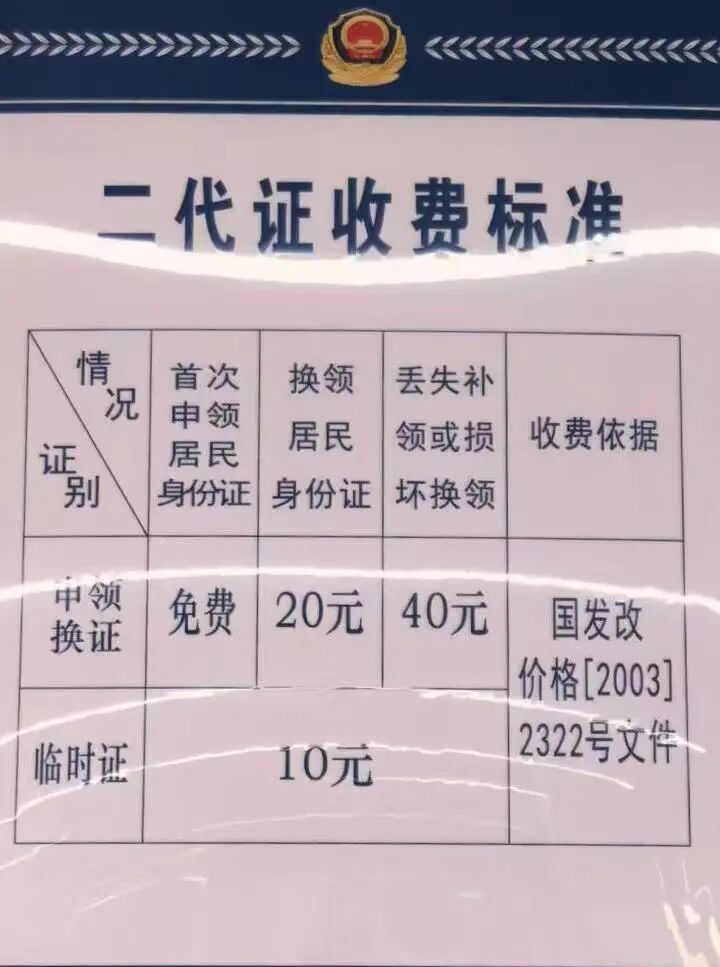 二代证收费标准
情况
证别
首次
申领
居民
身份证
换领
居民
身份证
丢失补
领或损
坏换领
收费依据
申领
换证
免费
20元
40元
国发改
价格[2003]
2322号文件
临时证
10元